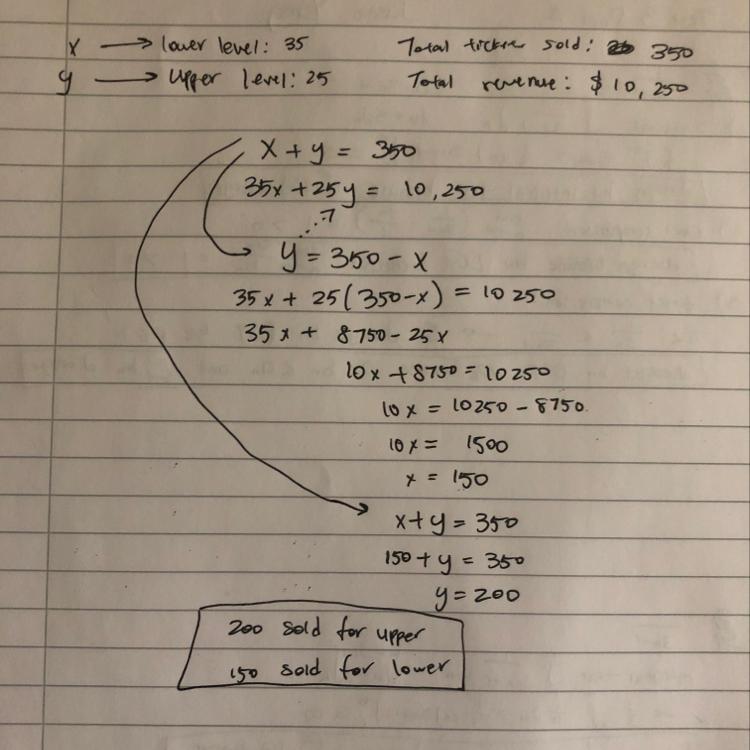 x → lower level: 35
Total tickets sold: 350
y → Upper level: 25
Total revenue: $10,250
x + y = 350
35x + 25y = 10,250
y = 350 - x
35x + 25(350-x) = 10250
35x + 8750 - 25x
10x + 8750 = 10250
10x = 10250 - 8750
10x = 1500
x = 150
x + y = 350
150 + y = 350
y = 200
200 sold for upper
150 sold for lower